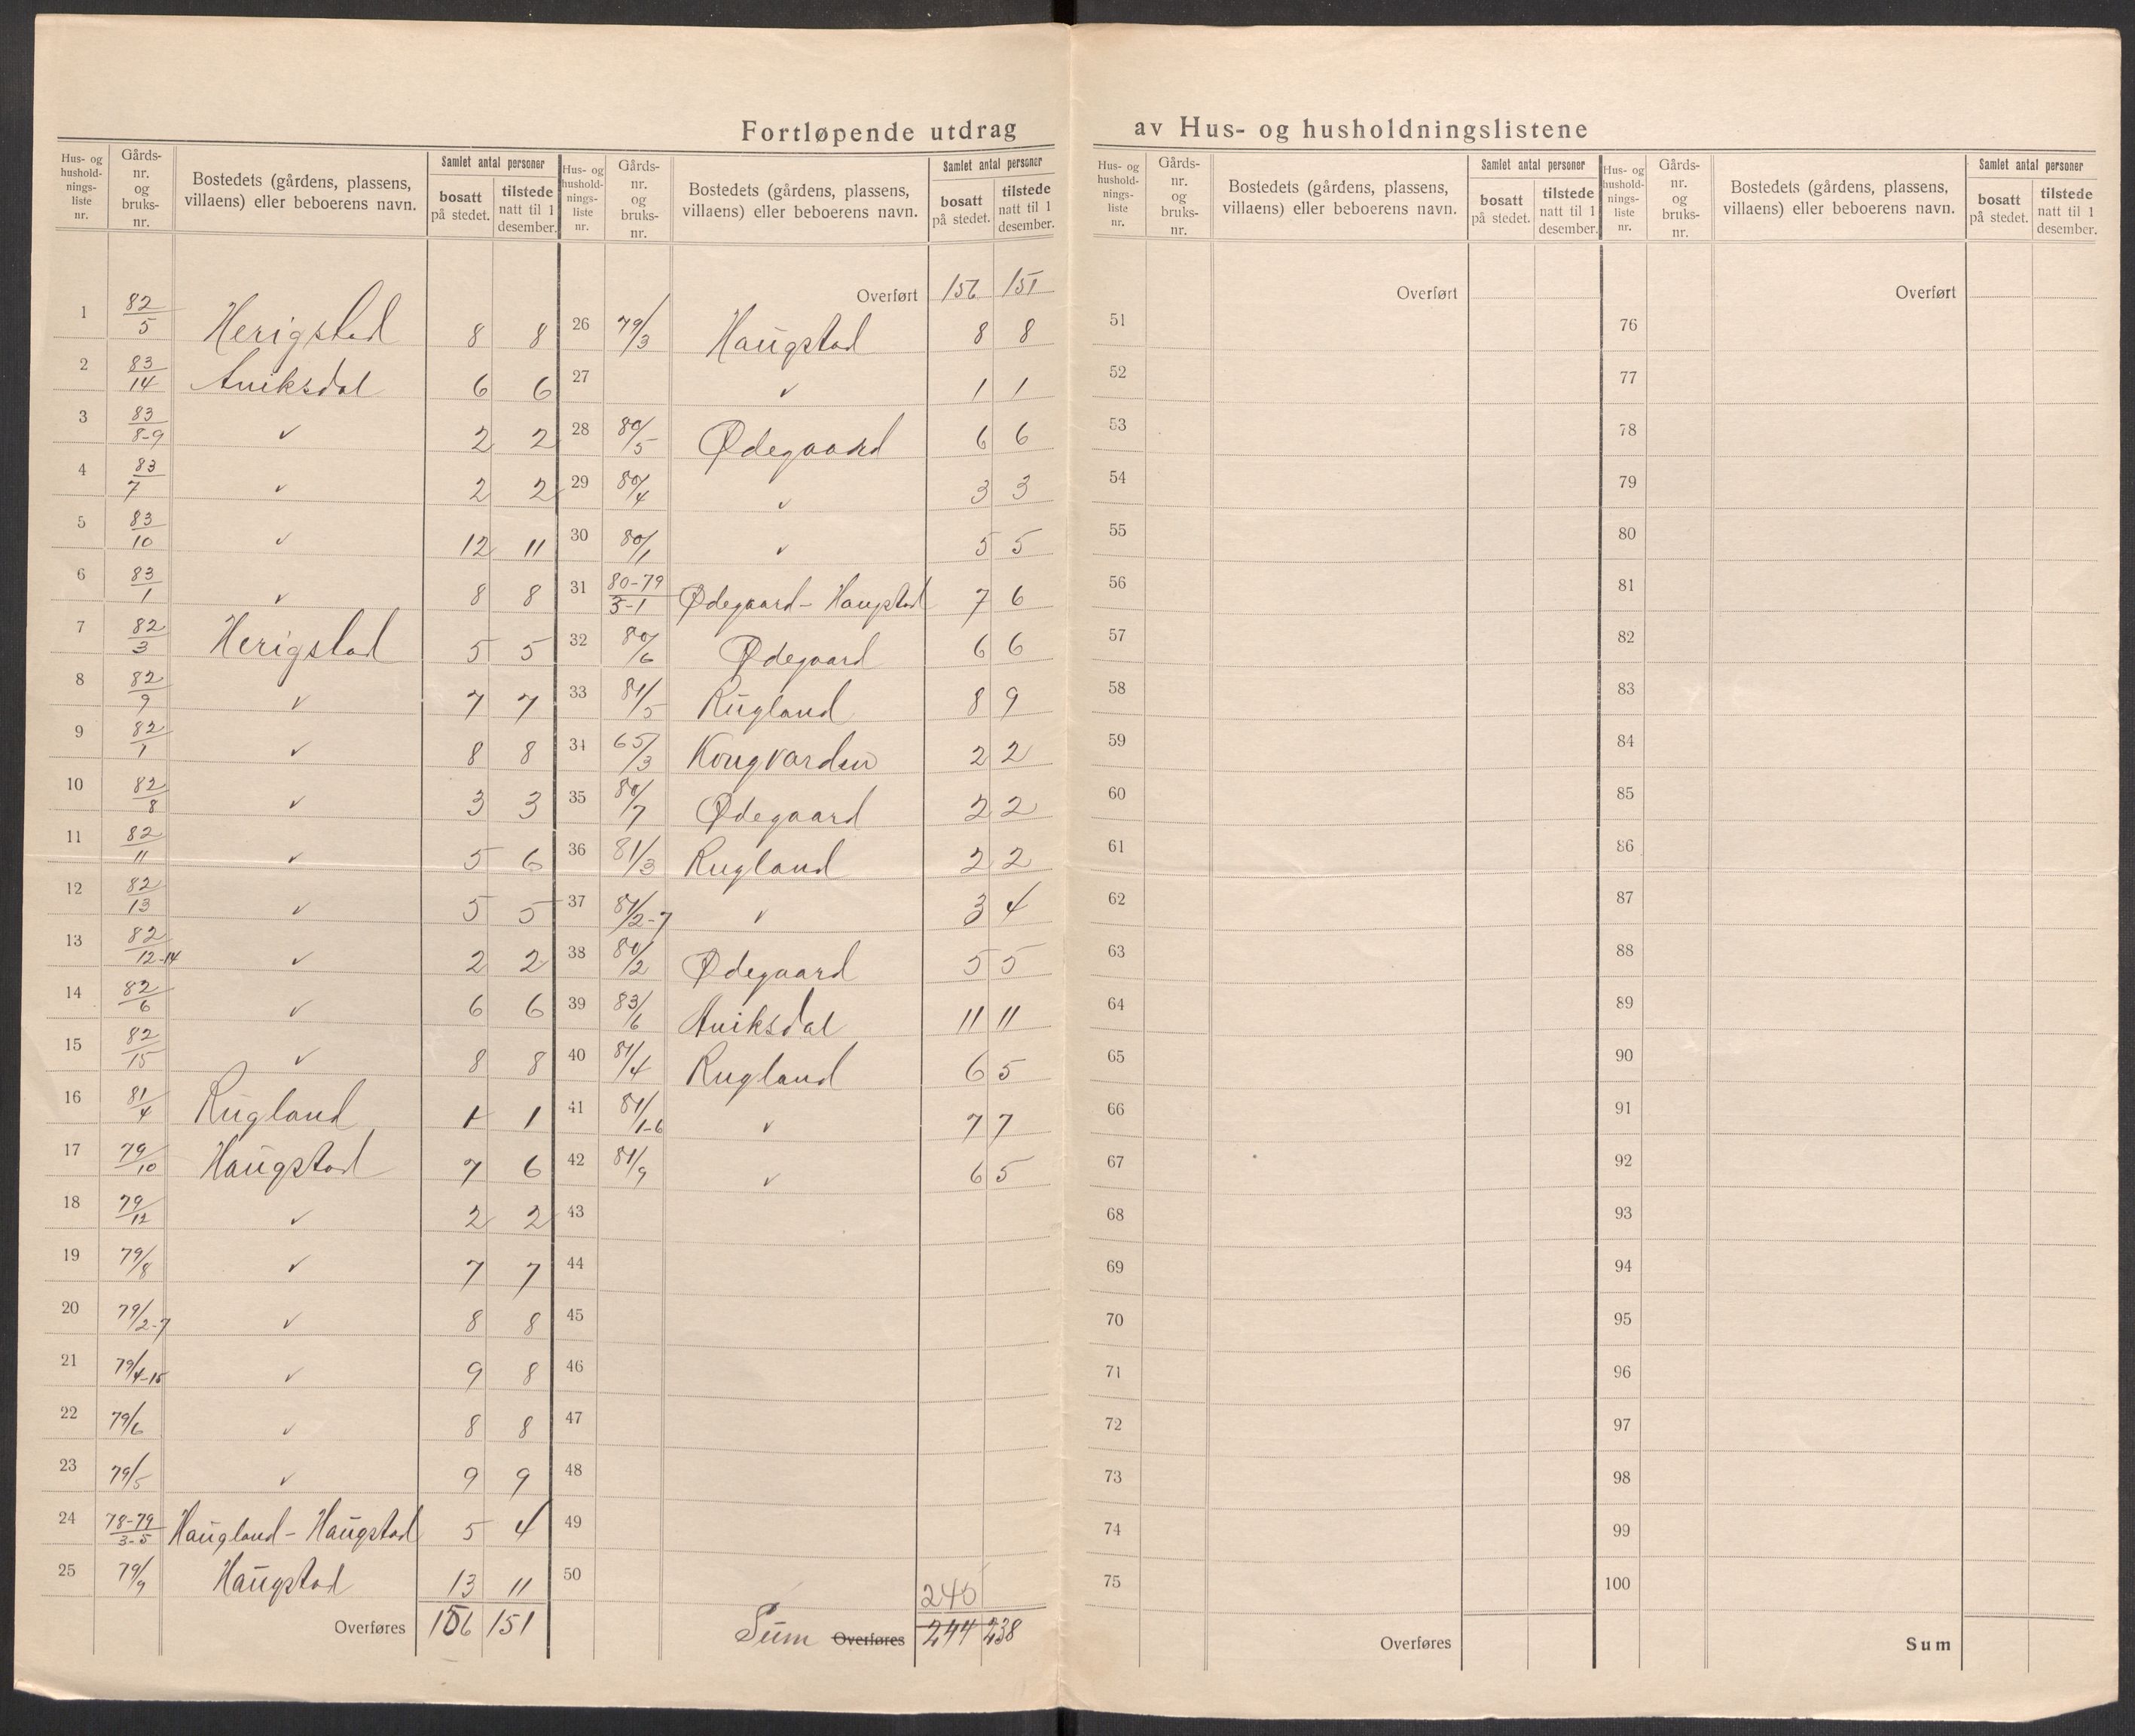 Fortløpende utdrag av Hus- og husholdningslistene
Hus- og hushold-nings-liste nr. | Gårds-nr. og bruks-nr. | Bostedets (gårdens, plassens, villaens) eller beboerens navn. | Samlet antal personer | bosatt på stedet. | tilstede natt til 1 desember.
1 82/5 Herigstad 8 8
2 83/14 Aniksdal 6 6
3 83/8-9 ✓ 2 2
4 83/7 ✓ 2 2
5 83/10 ✓ 12 11
6 83/1 ✓ 8 8
7 82/3 Herigstad 5 5
8 82/9 ✓ 7 7
9 82/1 ✓ 8 8
10 82/8 ✓ 3 3
11 82/11 ✓ 5 6
12 82/13 ✓ 5 5
13 82/12-14 ✓ 2 2
14 82/6 ✓ 6 6
15 82/15 ✓ 8 8
16 81/4 Rugland 1 1
17 79/10 Haugstad 7 6
18 79/12 ✓ 2 2
19 79/8 ✓ 7 7
20 79/2-7 ✓ 8 8
21 79/4-15 ✓ 9 8
22 79/6 ✓ 8 8
23 79/5 ✓ 9 9
24 78-79/3-5 Haugland - Haugstad 5 4
25 79/9 Haugstad 13 11
Overføres 156 151
Hus- og hushold-nings-liste nr. | Gårds-nr. og bruks-nr. | Bostedets (gårdens, plassens, villaens) eller beboerens navn. | Samlet antal personer | bosatt på stedet. | tilstede natt til 1 desember.
Overført 156 151
26 79/3 Haugstad 8 8
27 ✓ 1 1
28 80/5 Ødegaard 6 6
29 80/4 ✓ 3 3
30 80/1 ✓ 5 5
31 80-79/3-1 Ødegaard - Haugstad 7 6
32 80/6 Ødegaard 6 6
33 81/5 Rugland 8 9
34 65/3 Kongvarden 2 2
35 80/7 Ødegaard 2 2
36 81/3 Rugland 2 2
37 81/2-7 ✓ 3 4
38 80/2 Ødegaard 5 5
39 83/6 Aniksdal 11 11
40 81/4 Rugland 6 5
41 81/1-6 ✓ 7 7
42 81/9 ✓ 6 5
43
44
45
46
47
48
49
50
240
Sum Overføres 244 238
Hus- og hushold-nings-liste nr. | Gårds-nr. og bruks-nr. | Bostedets (gårdens, plassens, villaens) eller beboerens navn. | Samlet antal personer | bosatt på stedet. | tilstede natt til 1 desember.
Overført
51
52
53
54
55
56
57
58
59
60
61
62
63
64
65
66
67
68
69
70
71
72
73
74
75
Overføres
Hus- og hushold-nings-liste nr. | Gårds-nr. og bruks-nr. | Bostedets (gårdens, plassens, villaens) eller beboerens navn. | Samlet antal personer | bosatt på stedet. | tilstede natt til 1 desember.
Overført
76
77
78
79
80
81
82
83
84
85
86
87
88
89
90
91
92
93
94
95
96
97
98
99
100
Sum